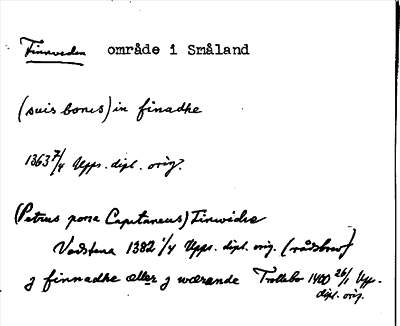 Finnveden område i Småland
(suis bonis) in finadhe
1363 7/4 Upps. dipl. orig.
(Petrus pona Capitaneus) Finwidie
Vadstena 1382 1/4 Upps. dipl. orig. (rådsbrev)
j finnadhe æller j wærende Trollebo 1400 26/1 Upp.
dipl. orig.